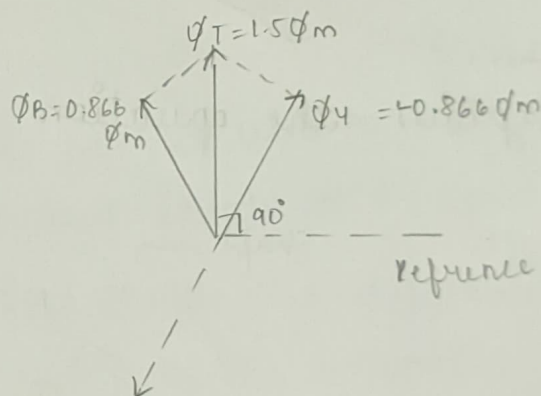 ϕT=1.5ϕm
ϕB=0.866
ϕm
ϕy = -0.866ϕm
90°
refrence